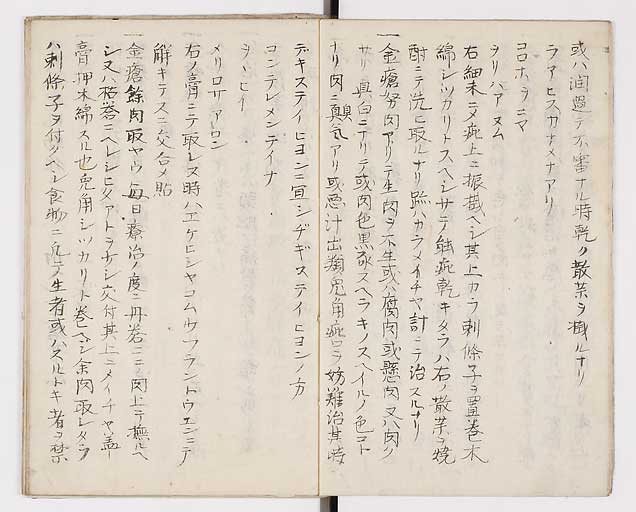 或ハ潤過テ不審ナル時乾ク散薬ヲ摻ルナリ
ラアヒスカナメナアリ
コロホウニマ
ヲリハアヌム
右細末ニメ疵上ニ振掛ヘシ其上カラ刺條子ヲ置巻木
綿シツカリトスヘシサテ能疵乾キタラハ右ノ散薬ヲ焼
酎ニテ洗ヒ取ルナリ跡ハカラメイチヤ計ニテ治スルナリ
一金瘡努肉アリテ生肉ヲ不生或ハ腐肉或懸肉又ハ肉ク
サリ真白ニナリテ或肉色黒豕スヘラキノスヘイルノ色コト
ナリ肉ニ臭気アリ或悪汁出類兎角疵口ヲ妨難治其時
デキステイヒヨンニ宜シヂギステイヒヨンノ方
コンテレメンテイナ
ヲヽヒイ
メリロサアーロン
右ノ膏ニテ取レヌ時ハエケヒシヤコムウフラントウエンニテ
解キテスニ交合メ貼
一金瘡餘肉取ヤウ毎日療治ノ度ニ丹礬ニ肉上ヲ撫ルヘ
シ又ハ枯礬ニヘレシヒタアトヲ少シ交付其上ニメイチヤ蓋
膏押木綿スル也兎角シツカリト巻ヘシ余肉取レタラ
ハ刺條子ヲ付ヘシ食物ニ凡テ生者或ハスルトキ者ヲ禁